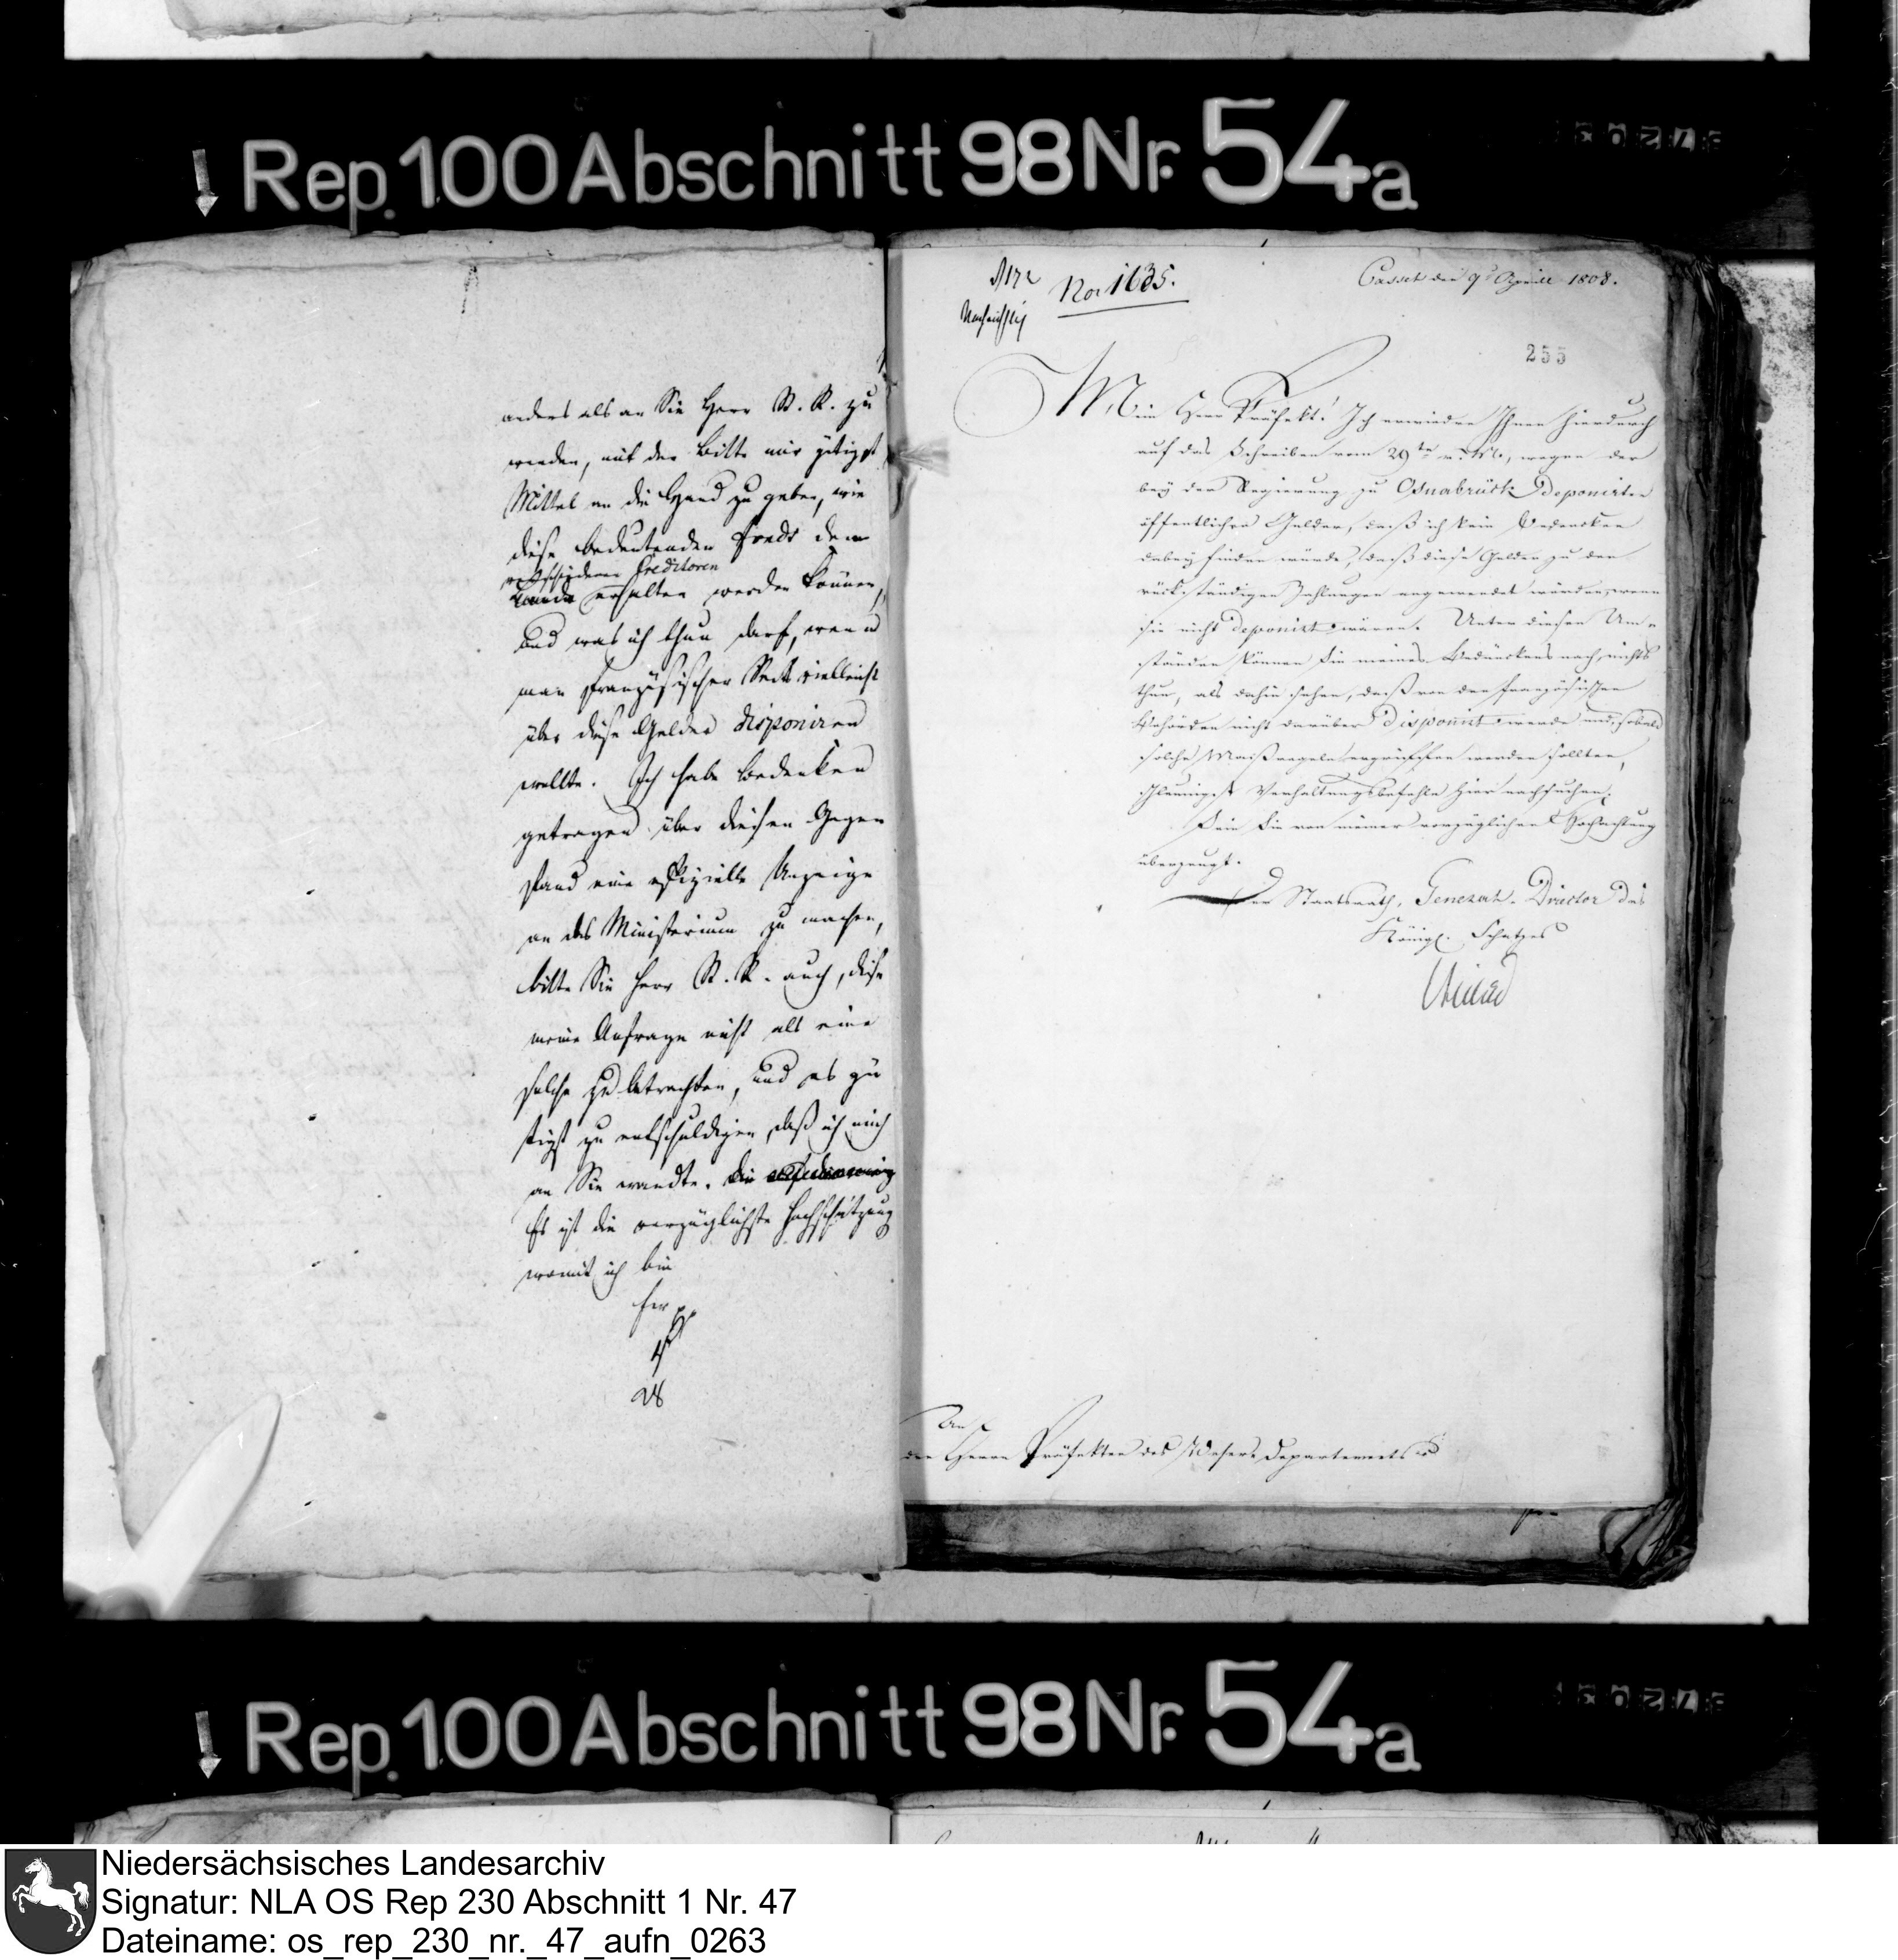 Rep. 100 Abschnitt 98 Nr. 54a
anders als an Sie Herr St. R. zu
wenden, mit der Bitte mir gütigst
Mittel an die Hand zu geben, wie
diese bedeutenden Fonds dem
verschiedenen Creditoren
Lande erhalten werden können,
und was ich thun darf, wenn
man französischer Seits vielleicht
über diese Gelder disponiren
wollte. Ich habe Bedenken
getragen über diesen Gegen
stand eine offizielle Anzeige
an das Ministerium zu machen,
bitte Sie Herr St. R. auch, diese
meine Anfrage nicht als eine
solche zu betrachten, und es gü
tigst zu entschuldigen, daß ich mich
an Sie wandte. Die
Es ist die vorzüglichste Hochschätzung
womit ich bin
No 1635.
Cassel den 9t Aprill 1808.
255
Mein Herr Präfekt! Ich erwiedre Ihnen hierdurch
auf das Schreiben vom 29ten v. M., wegen der
bey der Regierung zu Osnabrück deponirten
öffentlichen Gelder, daß ich kein Bedencken
dabey finden würde, daß diese Gelder zu den
rückständigen Zahlungen angewendet würden, wenn
sie nicht deponirt wären. Unter diesen Um-
ständen können Sie meines Bedünckens nach, nichts
thun, als dahin sehen, daß von den französischen
Behörden nicht darüber disponirt werde und, sobald
solche Maißregeln ergriffen werden sollten,
schleunigst Verhaltungsbefehle hier nachsuchen.
Sein Sie von meiner vorzüglichen Hochachtung
überzeugt.
Der Staatsrath, General-Director des
Königl. Schatzes
An
den Herrn Präfekten des Weser Departements
Rep. 100 Abschnitt 98 Nr. 54a
Niedersächsisches Landesarchiv
Signatur: NLA OS Rep 230 Abschnitt 1 Nr. 47
Dateiname: os_rep_230_nr._47_aufn_0263